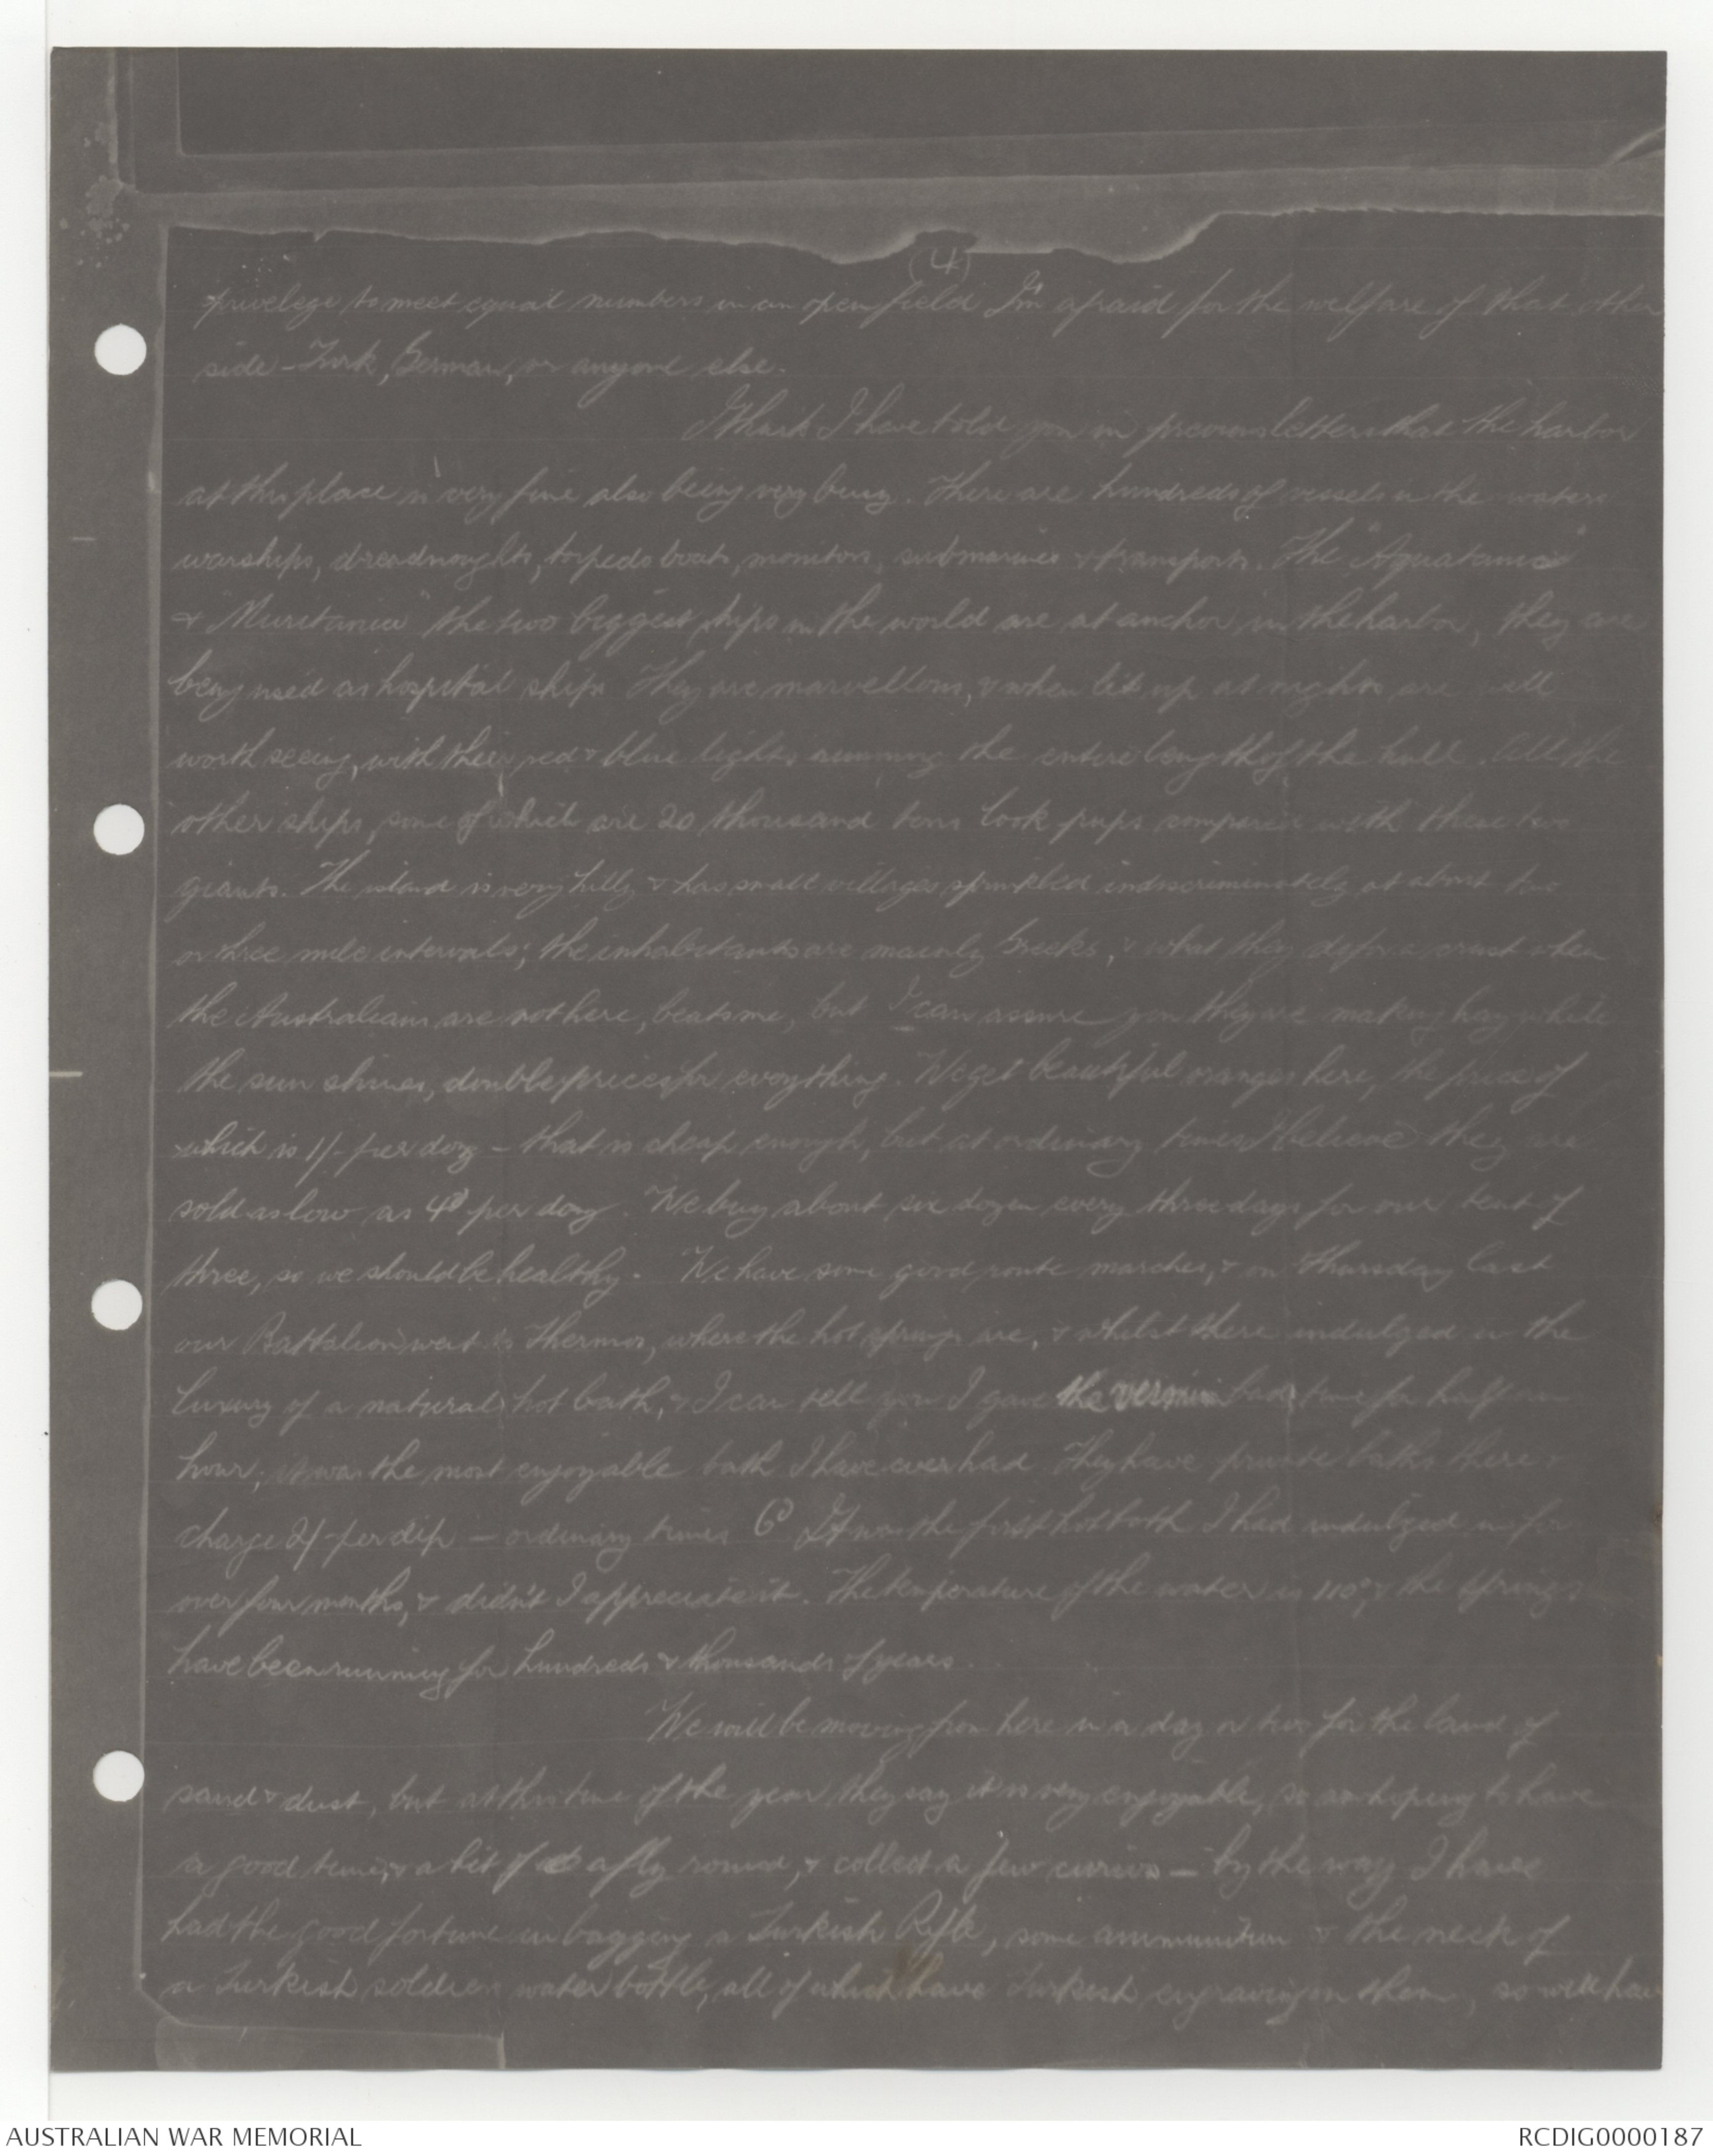 (4)
privelege to meet equal numbers in an open field I'm afraid for the welfare of that other
side - Turk, German, or anyone else.
I think I have told you in previous letters that the harbor
at this place is very fine also being very busy. There are hundreds of vessels in the waters
warships, dreadnoughts, torpedo boats, monitors, submarines & transports. The "Aquatania"
& Muritania" the two biggest ships in the world are at anchor in the harbor, they are
being used as hospital ships They are marvellous, & when lit up at nights are well
worth seeing, with their red & blue lights running the entire length of the hull. All the
other ships, some of which are 20 thousand tons look pups compared with these two
giants. The island is very hilly & has small villages sprinkled indiscriminately at about two
or three mile intervals; the inhabitants are mainly Greeks, & what they do for a crust when
the Australians are not here, beats me, but I can assure you they are making hay while
the sun shines, double prices for everything. We get beautiful oranges here, the price of
which is 1/- per doz - that is cheap enough, but at ordinary times I believe they are
sold as low as 4d per doz. We buy about six dozen every three days for our tent of
three, so we should be healthy. We have some good route marches, & on Thursday last
our Battalion went to Thermos, where the hot springs are, & whilst there indulged in the
luxury of a natural hot bath, & I can tell you I gave the vermin bad time for half an
hour; it was the most enjoyable bath I have ever had They have private baths there &
charge 2/- per dip - ordinary times 6d It was the first hot bath I had indulged in for
over four months, & didn't I appreciate it. The temperature of the water is 110°, & the springs
have been running for hundreds & thousands of years.
We will be moving from here in a day or two for the land of
sand & dust, but at this time of the year they say it is very enjoyable, so am hoping to have
a good time, & a bit of a fly round, & collect a few curios - by the way I have
had the good fortune in bagging a Turkish Rifle, some ammunition & the neck of
a Turkish soldiers water bottle, all of which have Turkish engraving on them, so will have
AUSTRALIAN WAR MEMORIAL
RCDIG0000187